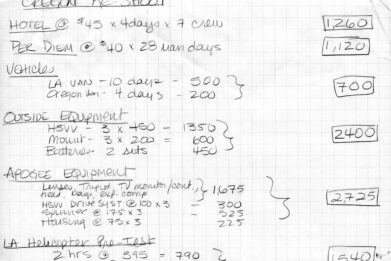 OREGON RE-SHOOT
HOTEL @ $45 x 4days x 7 crew 1,260
PER DIEM @ $40 x 28 Man days 1,120
VEHICLES
LA VAN - 10 days - 500
Oregon Van - 4 days - 200 700
OUTSIDE EQUIPMENT
HSVV - 3 x 450 - 1350
Mount - 3 x 200 = 600 2400
Batteries - 2 sets 450
APOGEE EQUIPMENT
Lenses, Tripod, TV monitor/cont,
head, bags, exp. comp 1,675
HSVV Drive Syst @ 100 x 3 - 300 2,725
Spinner @ 175 x 3 - 525
Housing @ 75 x 3 225
LA Helicopter Pre-Test
2 hrs @ 395 = 790 1540